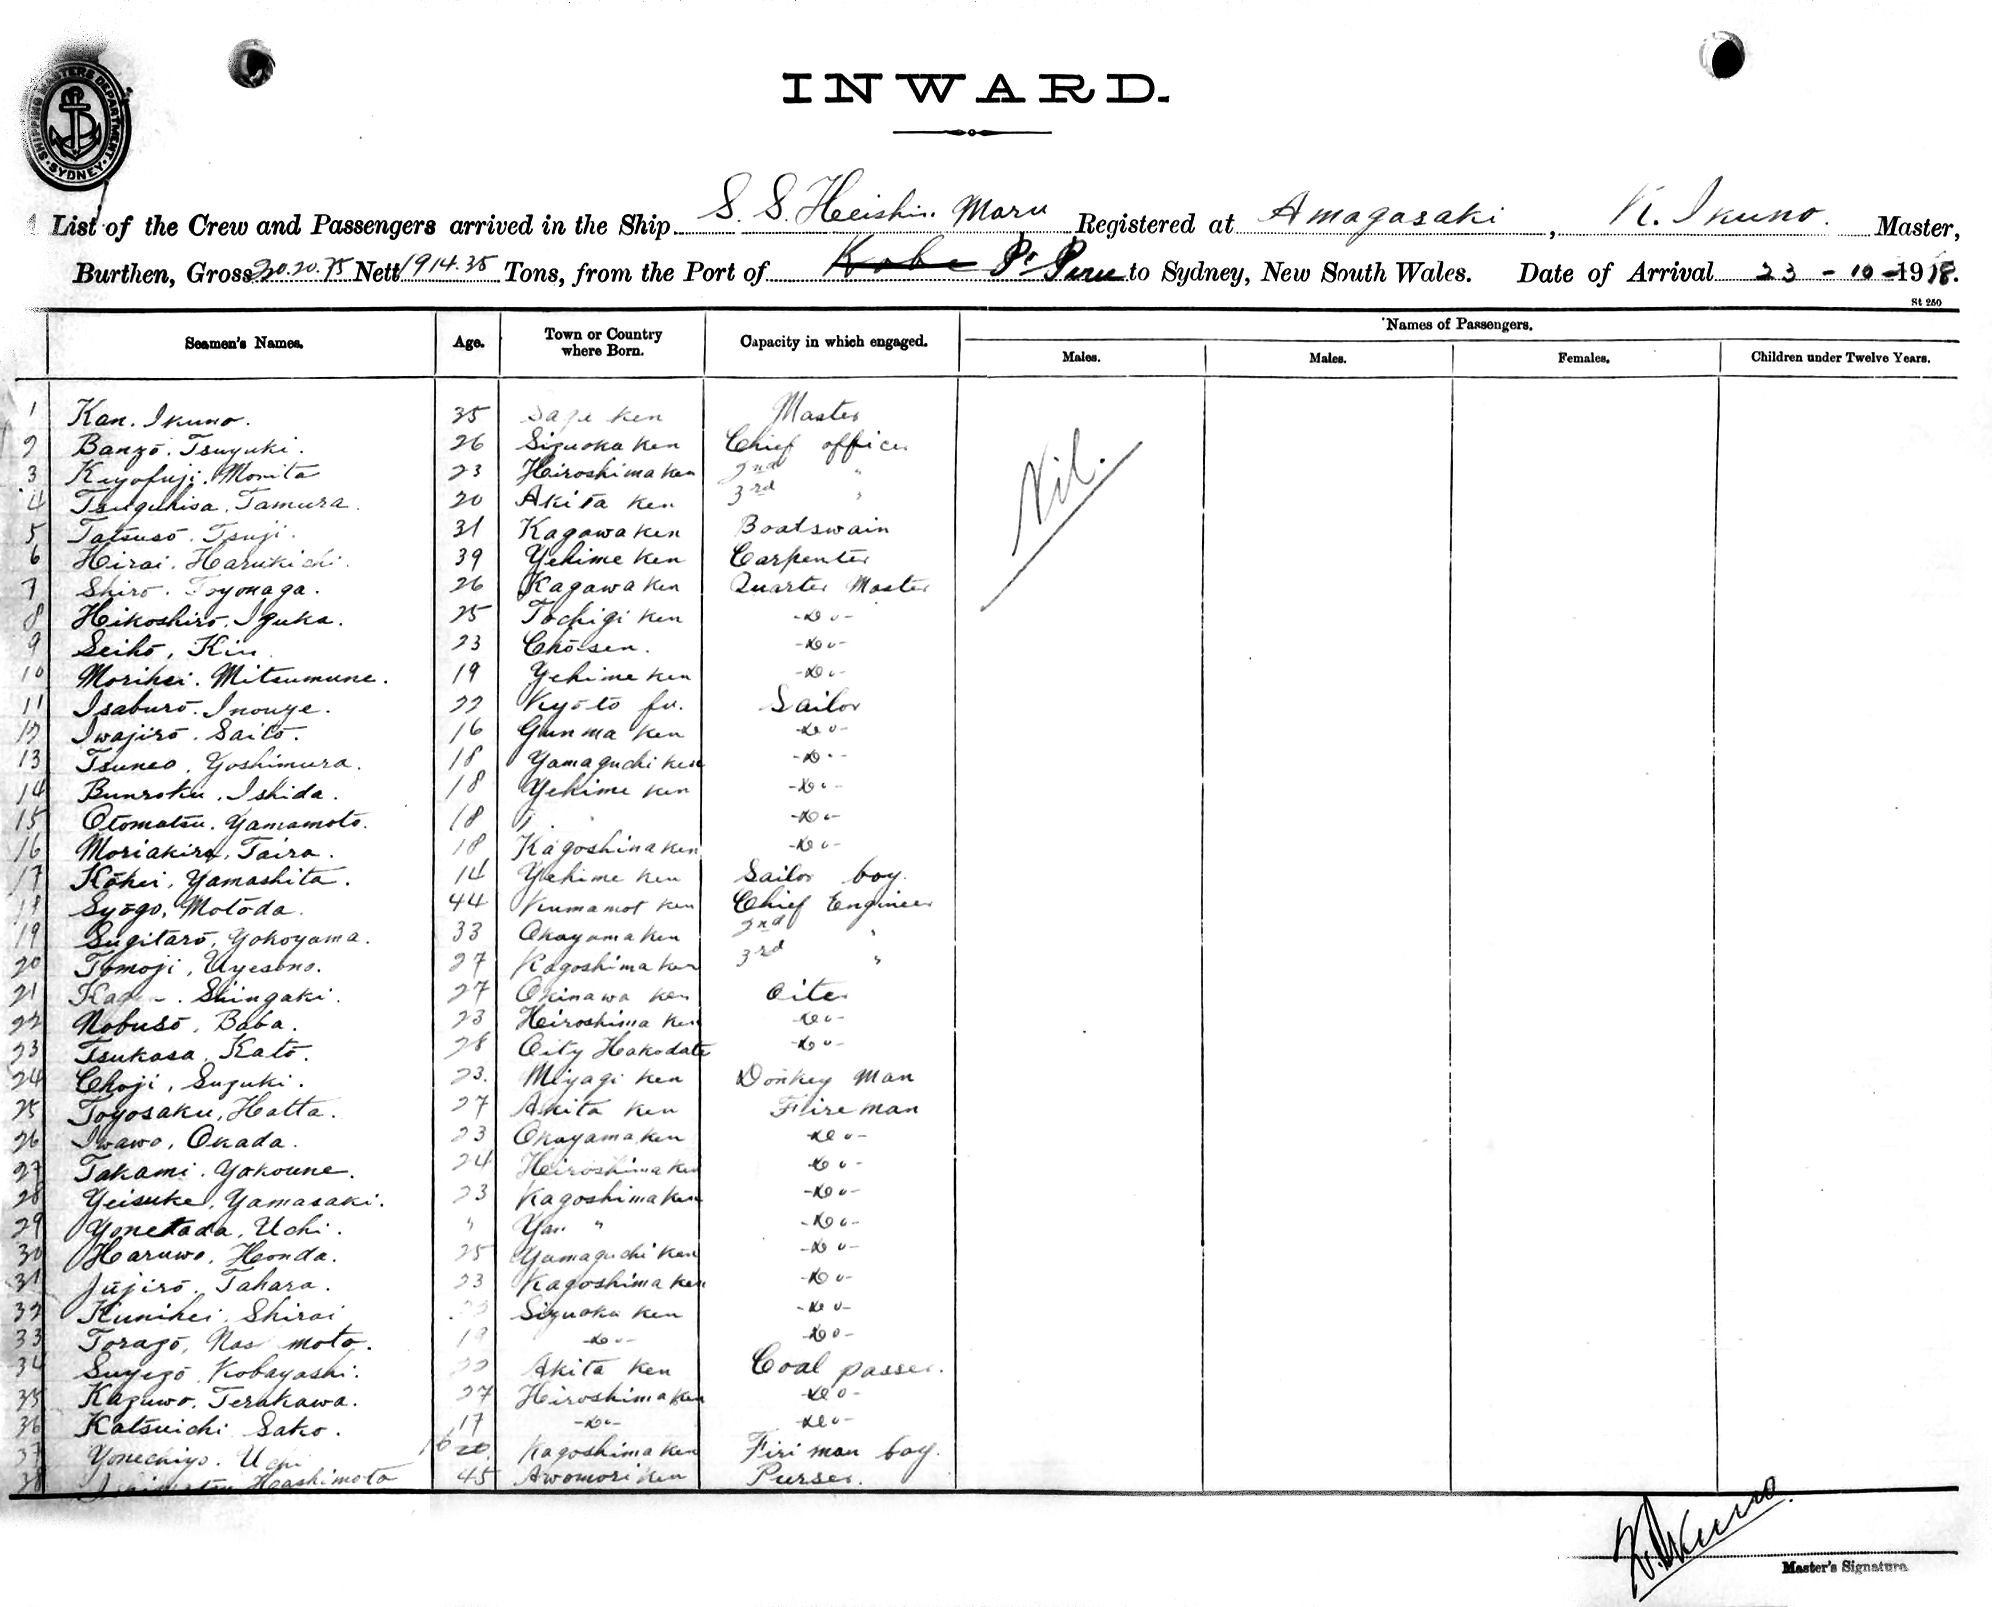 INWARD.
SHIPPING MASTERS DEPARTMENT SYDNEY
List of the Crew and Passengers arrived in the Ship S. S. Heishin Maru Registered at Amagasaki, K. Ikuno. Master,
Burthen, Gross Nett 1914.35 Tons, from the Port of Kobe Pt Piru to Sydney, New South Wales. Date of Arrival 23 - 10 - 1918.
St 250
Seamen's Names. Age. Town or Country where Born. Capacity in which engaged. Names of Passengers.
Males. Males. Females. Children under Twelve Years.
Nil.
1 Kan. Ikuno. 35 Saga ken Master
2 Banzō. Tsuyuki. 26 Sizuoka ken Chief officer
3 Kiyofuji. Morita 23 Hiroshima ken 2nd "
4 Tsuguhisa. Tamura. 20 Akita ken 3rd "
5 Tatsusō. Tsuji. 31 Kagawa ken Boatswain
6 Hirai. Harukichi. 39 Yehime ken Carpenter
7 Shirō. Toyonaga. 26 Kagawa ken Quarter Master
8 Hikoshirō. Izuka. 25 Tochigi ken -do-
9 Seihō, Kin 23 Chōsen. -do-
10 Morihei. Mitsumune. 19 Yehime ken -do-
11 Isaburō. Inouye. 22 Kyōto fu. Sailor
12 Iwajirō. Saitō. 16 Gunma ken -do-
13 Tsuneo. Yoshimura. 18 Yamaguchi ken -do-
14 Bunroku. Ishida. 18 Yehime ken -do-
15 Otomatsu. Yamamoto. 18 -do-
16 Moriakira. Taira. 18 Kagoshima ken -do-
17 Kōhei, Yamashita. 14 Yehime ken Sailor boy.
18 Syōgo, Motōda. 44 Kumamot ken Chief Engineer
19 Sugitarō, Yokoyama. 33 Okayama ken 2nd "
20 Tomoji, Uyesono. 27 Kagoshima ken 3rd "
21 Shingaki. 27 Okinawa ken Oiler
22 Nobusō, Baba. 23 Hiroshima ken -do-
23 Tsukasa. Katō. 28 City Hakodate -do-
24 Choji, Suzuki. 23. Miyagi ken Donkey Man
25 Toyosaku, Hatta. 27 Akita ken Fireman
26 Iwawo, Okada. 23 Okayama ken -do-
27 Takami. Yokoune. 24 Hiroshima ken -do-
28 Yeisuke, Yamasaki. 23 Kagoshima ken -do-
29 Yonetada, Uchi. " " -do-
30 Haruwo, Honda. 25 Yamaguchi ken -do-
31 Jūjirō. Tahara. 23 Kagoshima ken -do-
32 Kunihei. Shirai Sizuoka ken -do-
33 Toragō, moto. 19 -do- -do-
34 Suyegō. Kobayashi. 22 Akita ken Coal passer.
35 Kazuwo. Terakawa. 27 Hiroshima ken -do-
36 Katsuichi Sako. 17 -do- -do-
37 Yonechiyo. Uchi 16 20 Kagoshima ken Fireman boy.
38 Hashimoto 45 Awomori ken Purser.
K. Ikuno.
Master's Signature